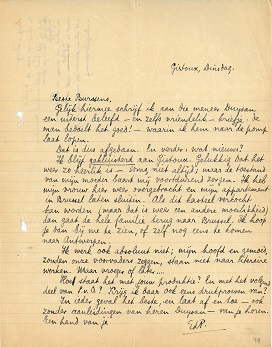 Gistoux, Dinsdag.
Beste Burssens,
Gelijk hiermee schrijf ik aan die meneer Duysan
een uiterst beleefd – en zelfs vriendelik – briefje. de
man behoeft het goed! – waarin ik hem naar de pomp
laat lopen.
Dat is dus afgedaan. En verder, wat nieuws?
Ik blijf gekluisterd aan Gistoux. Gelukkig dat het
weer zo heerlik is – soms, niet altijd; maar de toestand
van mijn moeder baart mij voortdurend zorgen. Ik heb
mijn vrouw hier weer overgebracht en mijn appartement
in Brussel laten sluiten. Als dit kasteel verkocht
kan worden (maar dat is weer een andere moeielikheid)
dan gaat de hele familie terug naar Brussel. Ik hoop
je dan bij me te zien, of zelf nog eens te komen
naar Antwerpen.
Ik werk ook absoluut niet; mijn hoofd en gemoed,
zouden onze voorvaders zeggen, staan niet naar literaire
werken. Maar vroeger of later....
Hoe staat het met jouw produktie? En met het volgend
deel van P. v. O.? Krijg ik daar ook eens drukproeven van?
In ieder geval het beste, en laat af en toe – ook
zonder aanleidingen van heren Duysan – van je horen.
Een hand van je
EdP.